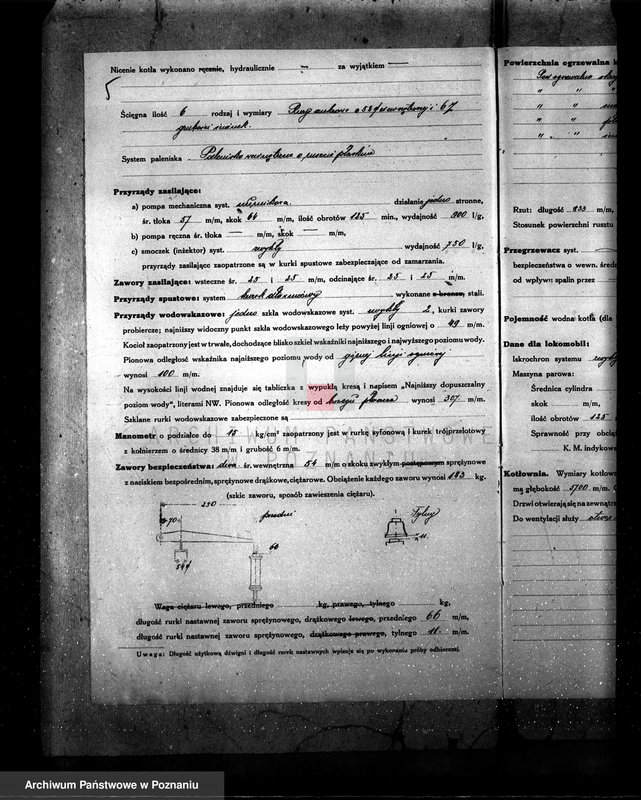 Nicenie kotła wykonano ręcznie, hydraulicznie — za wyjątkiem —
5
Ścięgna ilość 6 rodzaj i wymiary
System paleniska Palenisko
Przyrządy zasilające:
a) pompa mechaniczna syst. działanie jedno stronne,
śr. tłoka 57 m/m, skok 64 m/m, ilość obrotów 125 min., wydajność 900 l/g,
b) pompa ręczna śr. tłoka — m/m, skok — m/m,
c) smoczek (inżektor) syst. zwykły wydajność 750 l/g,
przyrządy zasilające zaopatrzone są w kurki spustowe zabezpieczające od zamarzania.
Zawory zasilające: wsteczne śr. 25 i 25 m/m, odcinające śr. 25 i 25 m/m.
Przyrządy spustowe: system wykonane z bronzu, stali.
Przyrządy wodowskazowe: jedno szkła wodowskazowe syst. zwykły 2, kurki zawory
probiercze; najniższy widoczny punkt szkła wodowskazowego leży powyżej linji ogniowej o 49 m/m.
Kocioł zaopatrzony jest w trwałe, dochodzące blisko szkieł wskaźniki najniższego i najwyższego poziomu wody.
Pionowa odległość wskaźnika najniższego poziomu wody od górnej linji ogniowej
wynosi 100 m/m.
Na wysokości linji wodnej znajduje się tabliczka z wypukłą kresą i napisem „Najniższy dopuszczalny
poziom wody", literami NW. Pionowa odległość kresy od wynosi 307 m/m.
Szklane rurki wodowskazowe zabezpieczone są
Manometr o podziałce do 15 kg/cm² zaopatrzony jest w rurkę syfonową i kurek trójprzelotowy
z kołnierzem o średnicy 38 m/m i grubość 6 m/m.
Zawory bezpieczeństwa: dwa śr. wewnętrzna 54 m/m o skoku zwykłym postępowym sprężynowe
z naciskiem bezpośrednim, sprężynowe drążkowe, ciężarowe. Obciążenie każdego zaworu wynosi 183 kg.
(szkic zaworu, sposób zawieszenia ciężaru).
230
70
przedni
Tylny
66
11
54
Waga ciężaru lewego, przedniego kg, prawego, tylnego kg,
długość rurki nastawnej zaworu sprężynowego, drążkowego lewego, przedniego 66 m/m,
długość rurki nastawnej zaworu sprężynowego, drążkowego prawego, tylnego 11 m/m.
Uwaga: Długość użytkową dźwigni i długość rurek nastawnych wpisuje się po wykonaniu próby odbiorczej.
Powierzchnia ogrzewalna k
" "
" "
" "
" "
Rzut: długość 833 m/m,
Stosunek powierzchni rusztu
Przegrzewacz syst.
bezpieczeństwa o wewn. średn
od wpływu spalin przez
Pojemność wodna kotła (dla
Dane dla lokomobil:
Iskrochron systemu
Maszyna parowa:
Średnica cylindra
skok m/m,
ilość obrotów 125
Sprawność przy obcią
K. M. indykowa
Kotłownia. Wymiary kotłown
ma głębokość 5700 m/m.
Drzwi otwierają się na zewnątrz
Do wentylacji służy
ARCHIWUM PAŃSTWOWE
W POZNANIU
Archiwum Państwowe w Poznaniu